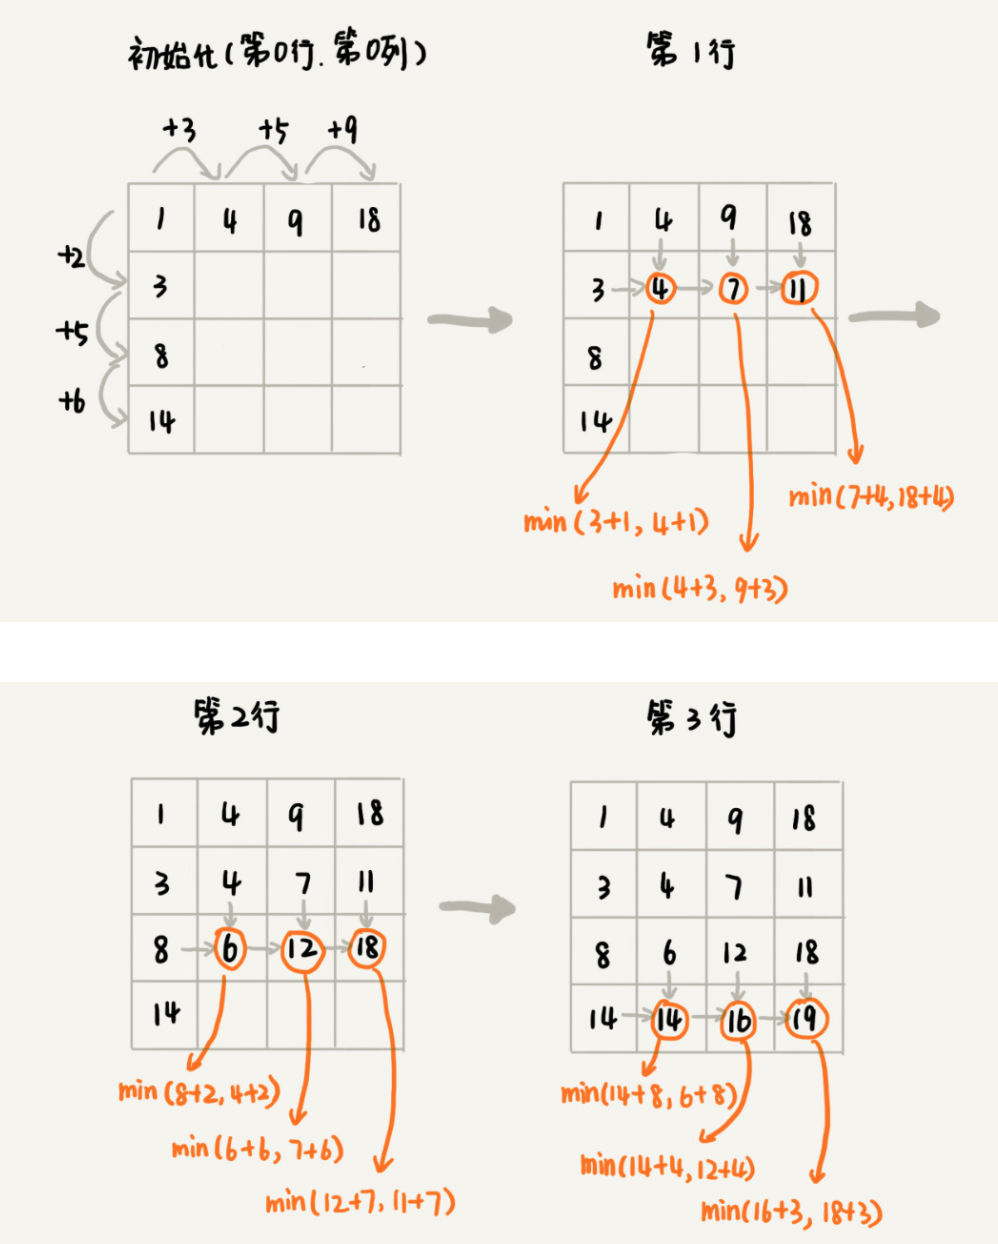 初始化(第0行.第0列)
+3 +5 +9
1 4 9 18
+2
3
+5
8
+6
14
第1行
1 4 9 18
3 4 7 11
8
14
min(7+4,18+4)
min(3+1, 4+1)
min(4+3, 9+3)
第2行
1 4 9 18
3 4 7 11
8 6 12 18
14
min(8+2,4+2)
min(6+6, 7+6)
min(12+7, 11+7)
第3行
1 4 9 18
3 4 7 11
8 6 12 18
14 14 16 19
min(14+8,6+8)
min(14+4,12+4)
min(16+3, 18+3)